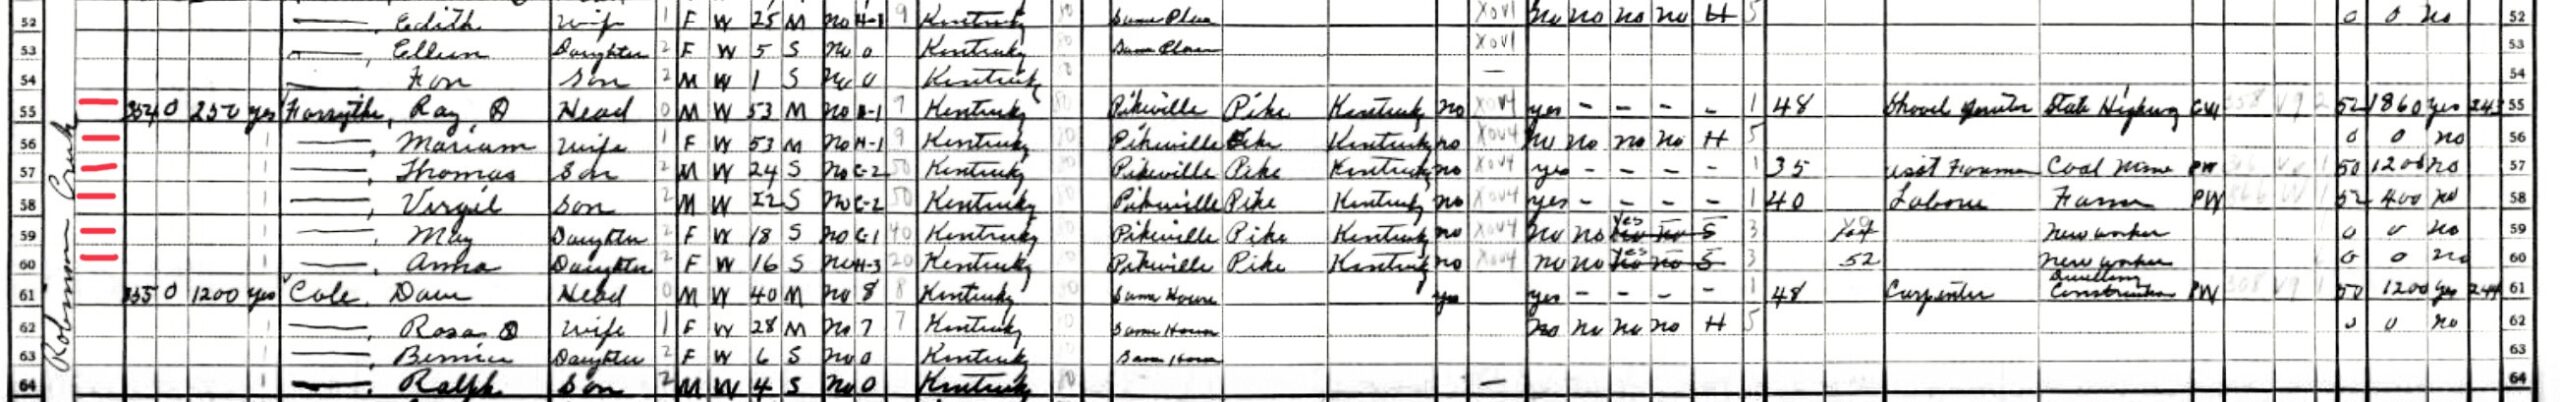 52 Edith wife 1 F W 25 M no H-1 9 Kentucky Same Place XOVI no no no no H 5 0 0 no 52
53 Ellen Daughter 2 F W 5 S no 0 Kentucky Same Place XOVI 53
54 Son 2 M W 1 S no 0 Kentucky — 54
55 354 0 250 yes Forsythe, Ray Head 0 M W 53 M no H-1 9 Kentucky Pikeville Pike Kentucky no XOV4 yes - - - - 1 48 Shovel State Highway GW 52 1860 yes 243 55
56 Mariam wife 1 F W 53 M no H-1 9 Kentucky Pikeville Pike Kentucky no XOV4 no no no no H 5 0 0 no 56
57 Thomas Son 2 M W 24 S no C-2 50 Kentucky Pikeville Pike Kentucky no XOV4 yes - - - - 1 35 asst Foreman Coal mine PW 50 1200 no 57
58 Virgil son 2 M W 22 S no C-2 50 Kentucky Pikeville Pike Kentucky no XOV4 yes - - - - 1 40 Labour Farm PW 52 400 no 58
59 May Daughter 2 F W 18 S no C-1 40 Kentucky Pikeville Pike Kentucky no XOV4 no no yes no no S 3 new worker 0 0 no 59
60 Anna Daughter 2 F W 16 S no H-3 20 Kentucky Pikeville Pike Kentucky no XOV4 no no yes no no S 3 52 new worker 0 0 no 60
61 355 0 1200 yes Cole, Dave Head 0 M W 40 M no 8 8 Kentucky Same House yes yes - - - - 1 48 Carpenter Dwelling Construction PW 50 1200 yes 244 61
62 Rosa wife 1 F W 28 M no 7 7 Kentucky Same House no no no no H 5 0 0 no 62
63 Bernice Daughter 2 F W 6 S no 0 Kentucky Same House 63
64 Ralph Son 2 M W 4 S no 0 Kentucky — 64